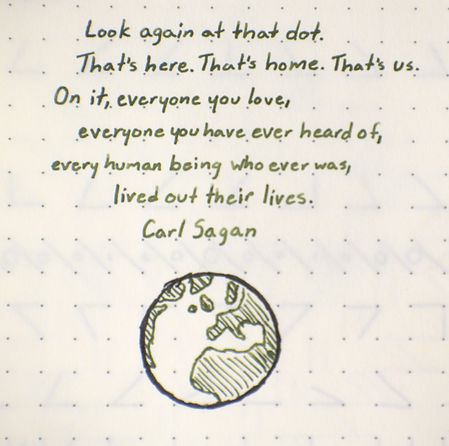 Look again at that dot.
That's here. That's home. That's us.
On it, everyone you love,
everyone you have ever heard of,
every human being who ever was,
lived out their lives.
Carl Sagan